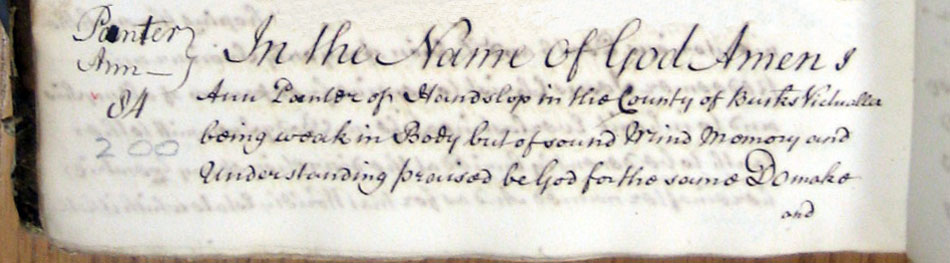 Panter
Ann
84
200
In the Name of God Amen I
Ann Panter of Handslop in the County of Bucks Victualler
being weak in Body but of sound Mind Memory and
Understanding praised be God for the same Do make
and